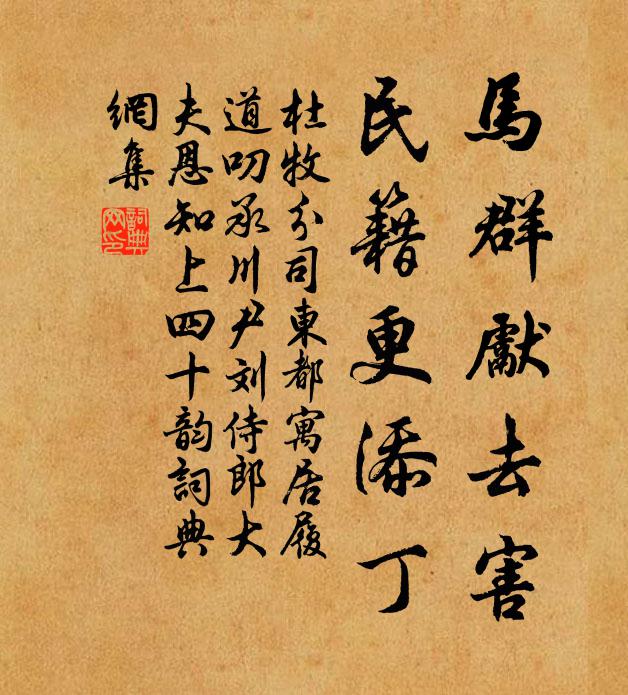 馬群獻去害
民籍更添丁
杜牧分司東都寓居履
道叨承川尹刘侍郎大
夫恩知上四十韵詞典
網集
詞典
网印